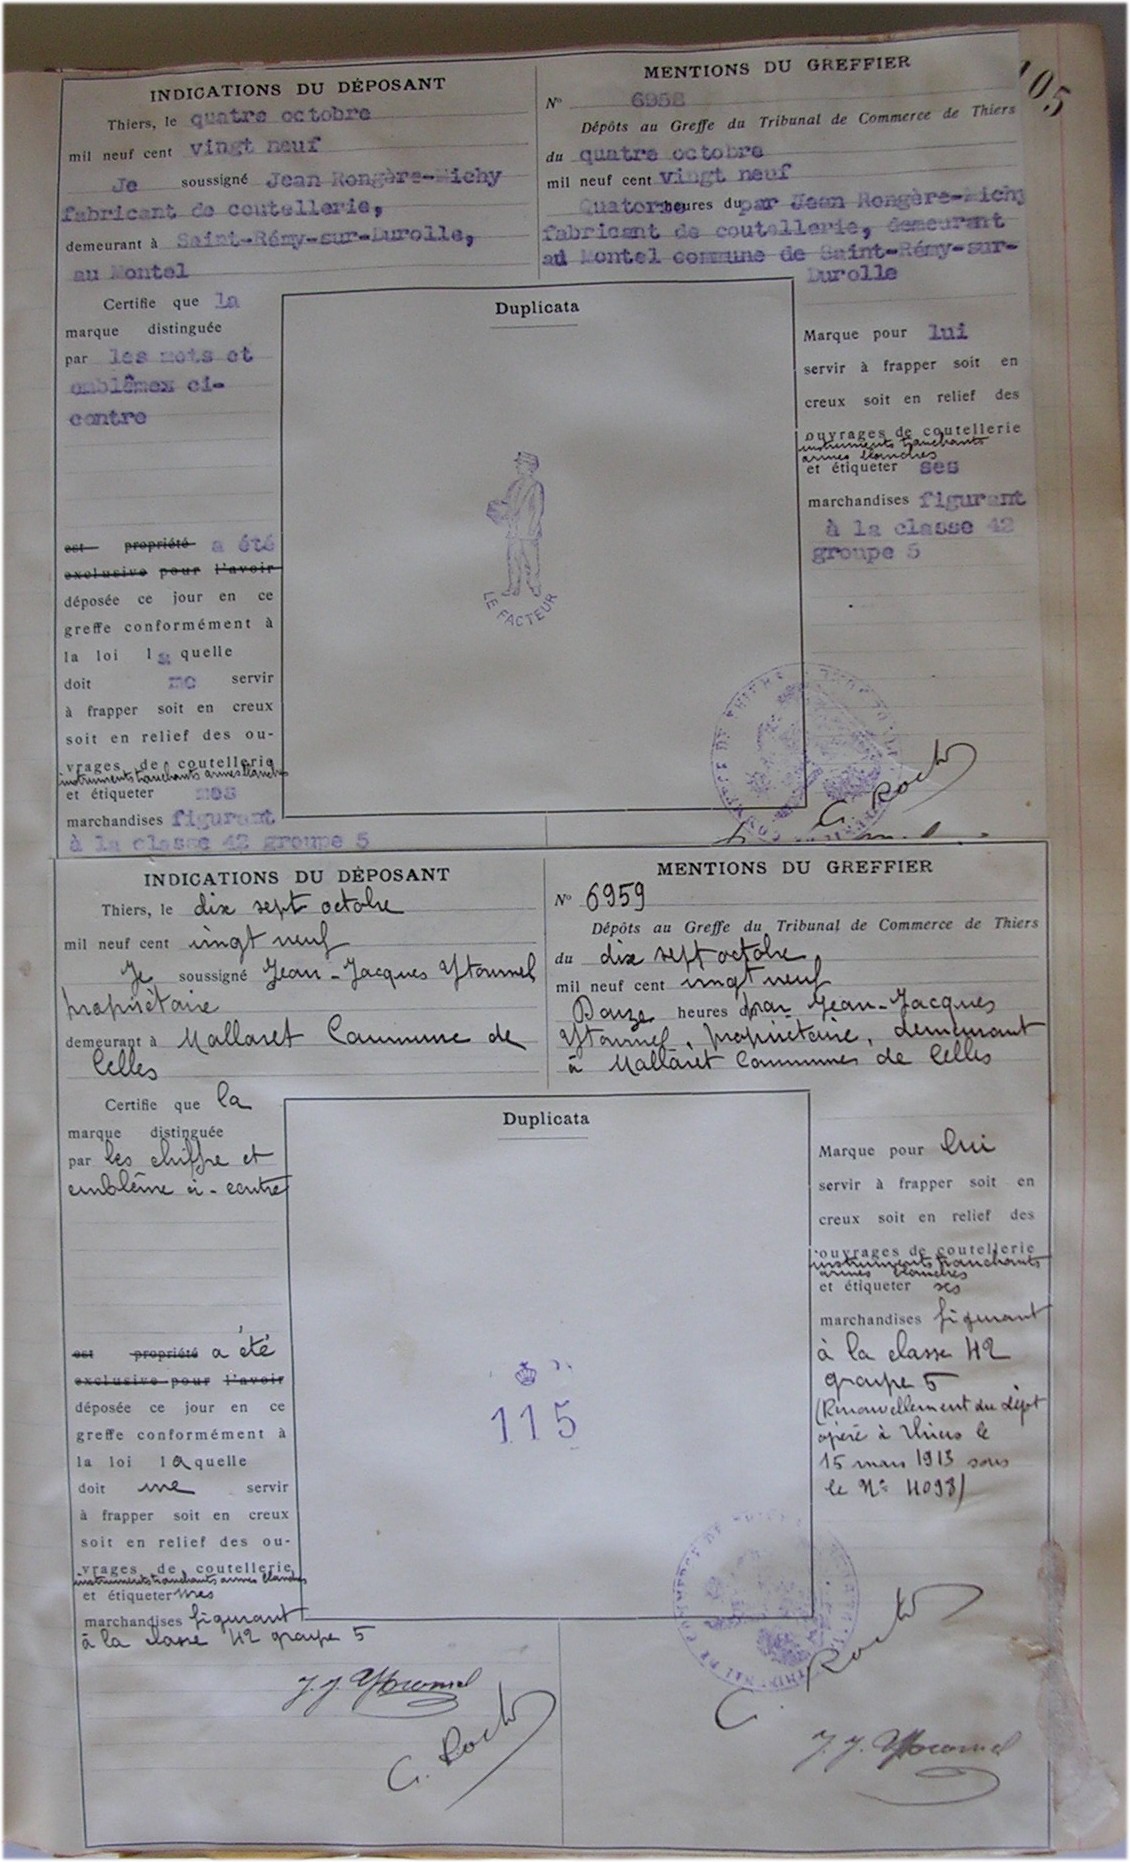 105
INDICATIONS DU DÉPOSANT
Thiers, le quatre octobre
mil neuf cent vingt neuf
Je soussigné Jean Rongère-Michy
fabricant de coutellerie,
demeurant à Saint-Rémy-sur-Durolle,
au Montel
MENTIONS DU GREFFIER
N° 6958
Dépôts au Greffe du Tribunal de Commerce de Thiers
du quatre octobre
mil neuf cent vingt neuf
Quatorze heures du par Jean Rongère-Michy
fabricant de coutellerie, demeurant
au Montel commune de Saint-Rémy-sur-
Durolle
Certifie que la
marque distinguée
par les mots et
emblêmex ci-
contre
est propriété a été
exclusive pour l'avoir
déposée ce jour en ce
greffe conformément à
la loi la quelle
doit me servir
à frapper soit en creux
soit en relief des ou-
vrages de coutellerie
instruments tranchants armes blanches
et étiqueter mes
marchandises figurant
à la classe 42 groupe 5
Duplicata
LE FACTEUR
Marque pour lui
servir à frapper soit en
creux soit en relief des
ouvrages de coutellerie
instruments tranchants
armes blanches
et étiqueter ses
marchandises figurant
à la classe 42
groupe 5
G. Roch
INDICATIONS DU DÉPOSANT
Thiers, le dix sept octobre
mil neuf cent vingt neuf
Je soussigné Jean-Jacques Ytournel
propriétaire
demeurant à Mallaret Commune de
Celles
MENTIONS DU GREFFIER
N° 6959
Dépôts au Greffe du Tribunal de Commerce de Thiers
du dix sept octobre
mil neuf cent vingt neuf
Douze heures du par Jean-Jacques
Ytournel, propriétaire, demeurant
à Mallaret Communes de Celles
Certifie que la
marque distinguée
par les chiffre et
emblême ci-contre
est propriété a été
exclusive pour l'avoir
déposée ce jour en ce
greffe conformément à
la loi la quelle
doit me servir
à frapper soit en creux
soit en relief des ou-
vrages de coutellerie
instruments tranchants armes blanches
et étiqueter mes
marchandises figurant
à la classe 42 groupe 5
Duplicata
115
Marque pour lui
servir à frapper soit en
creux soit en relief des
ouvrages de coutellerie
instruments tranchants
armes blanches
et étiqueter ses
marchandises figurant
à la classe 42
groupe 5
(Renouvellement du dépôt
opéré à Thiers le
15 mars 1913 sous
le N° 4093)
J. J. Ytournel
G. Roch
G. Roch
J. J. Ytournel